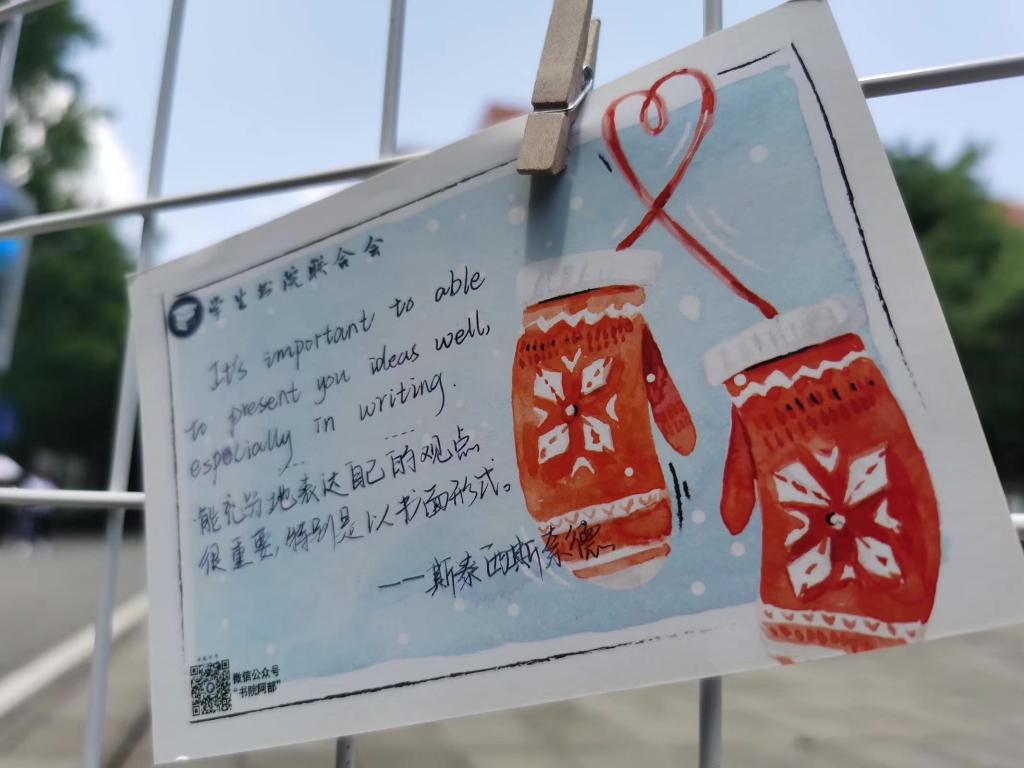 学生书院联合会
It's important to able
to present you ideas well,
especially in writing.
能充分地表达自己的观点
很重要,特别是以书面形式。
——斯泰西斯奈德
微信公众号
“书院阿部”